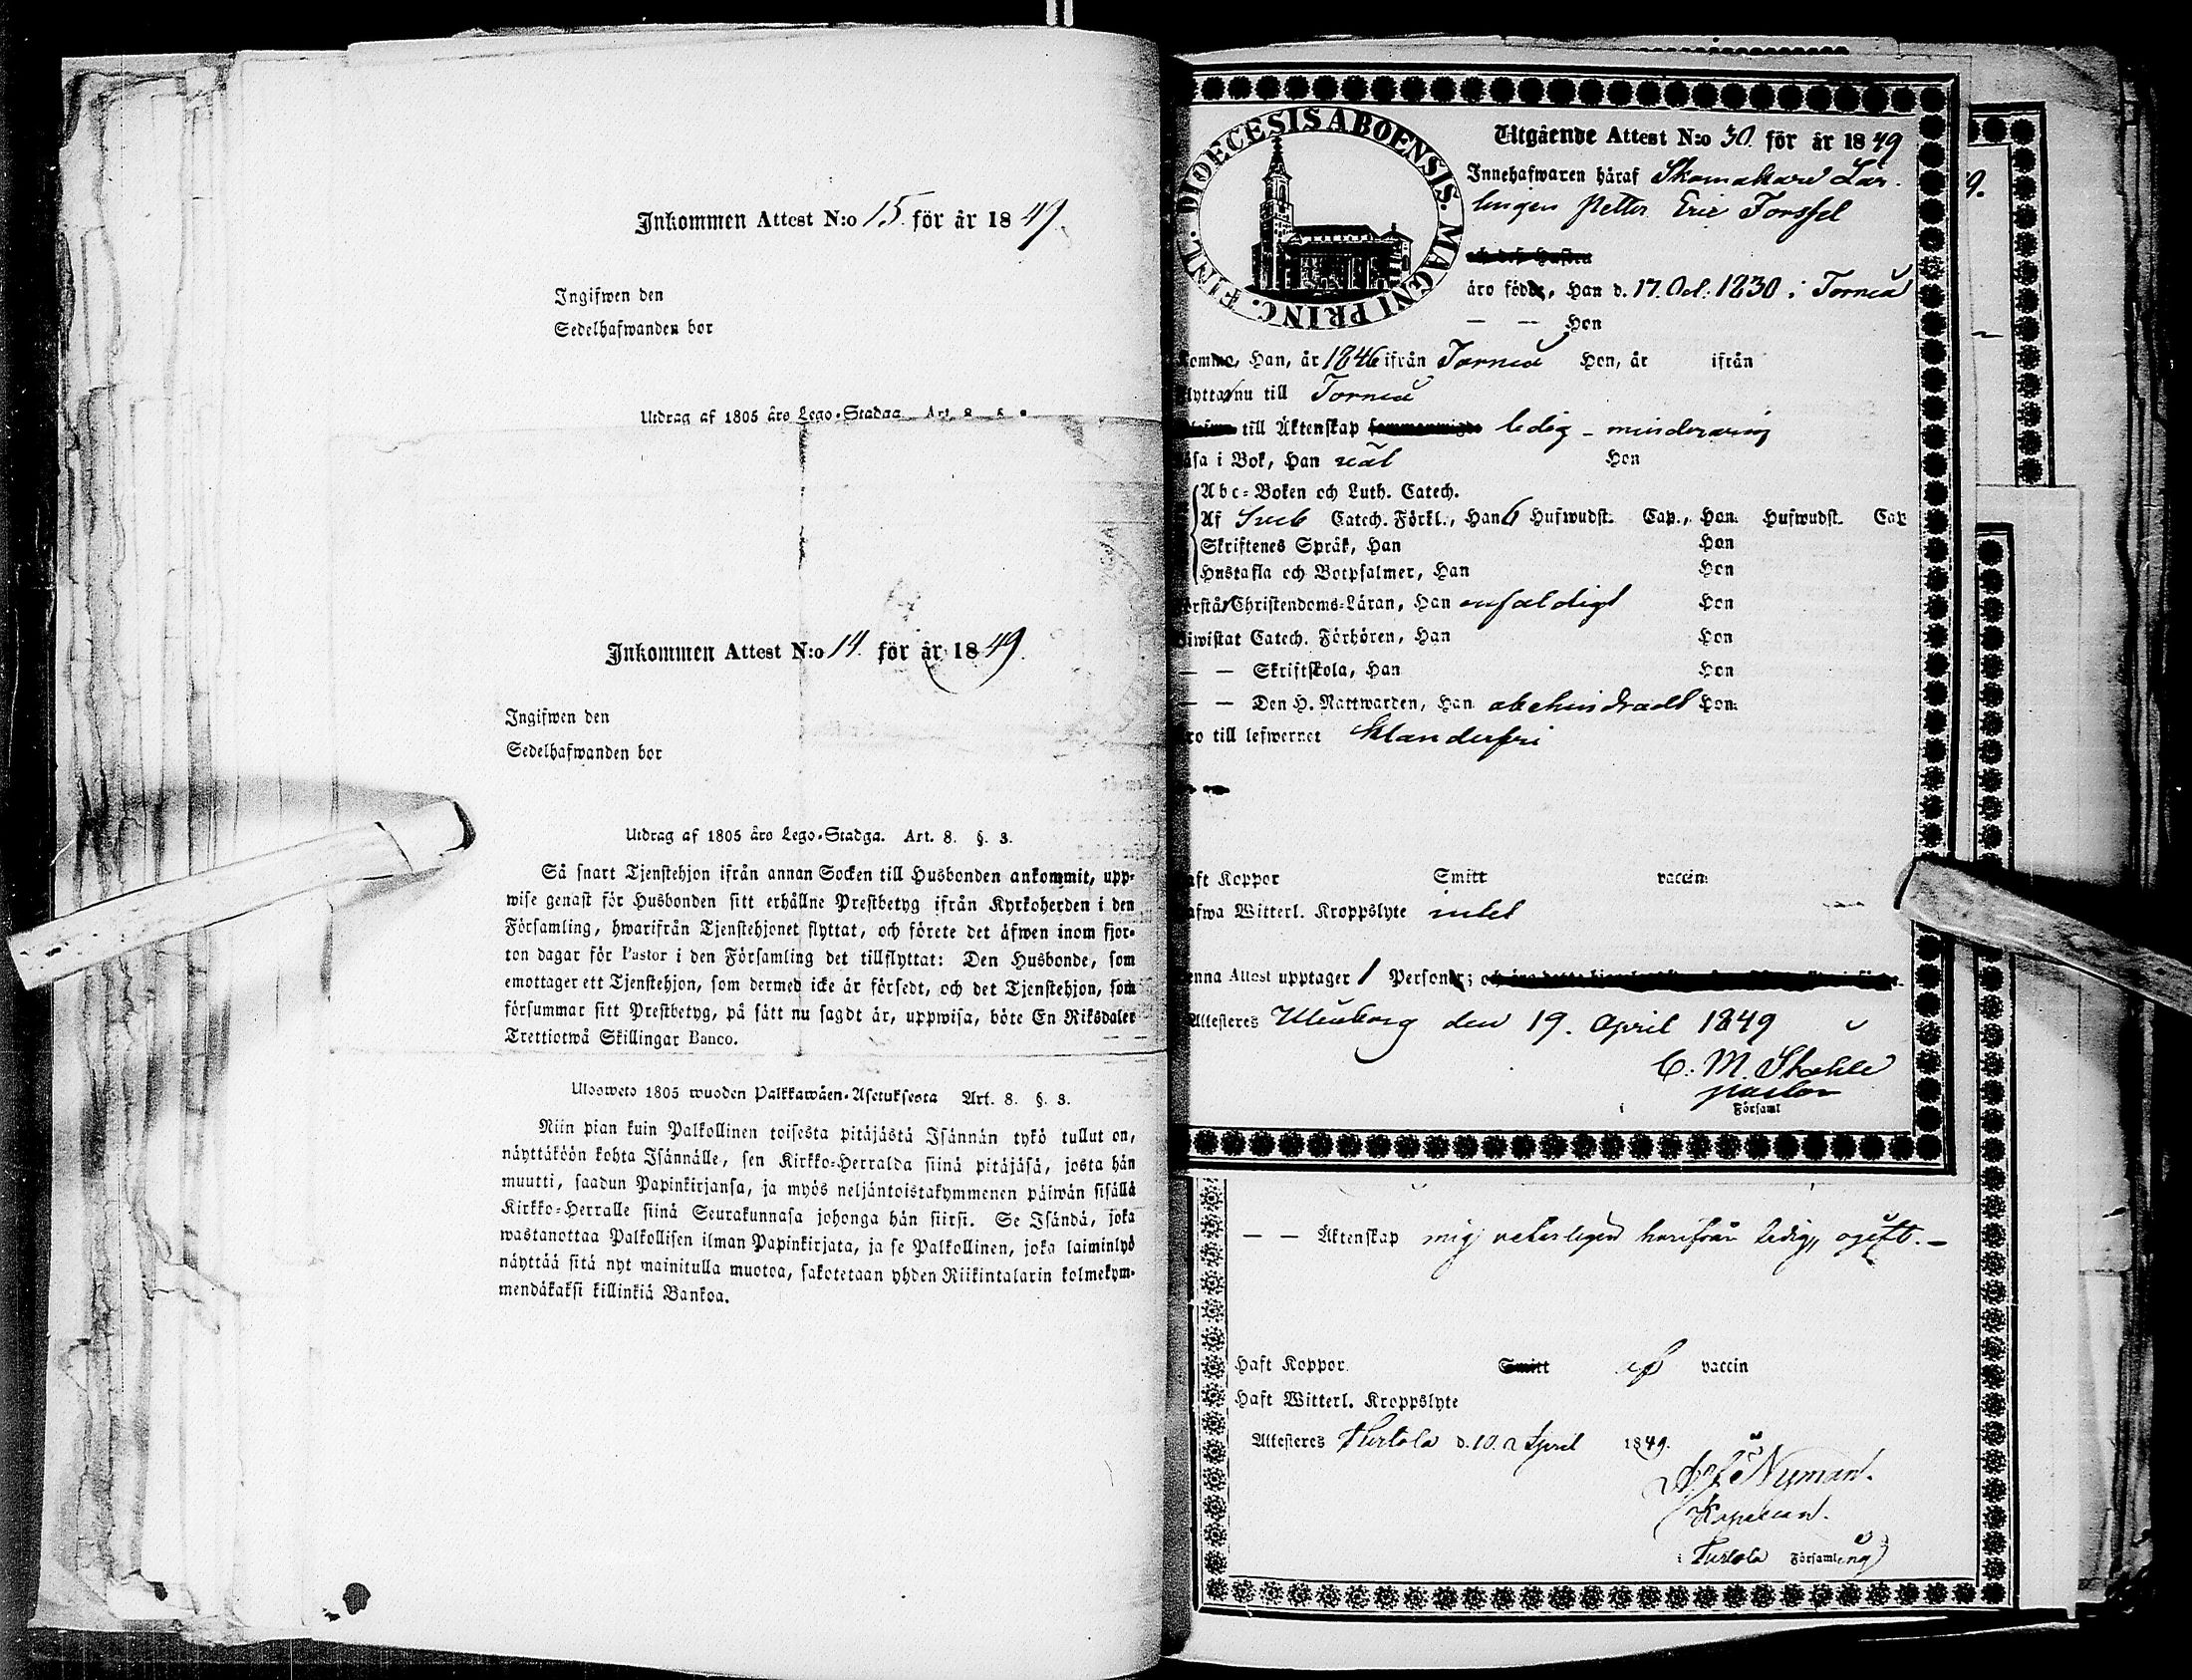 Inkommen Attest N:o 15. för år 1849.
Ingifwen den
Sedelhafwanden bor
Utdrag af 1805 års Lego-Stadga Art. 8
Inkommen Attest N:o 14. för år 1849.
Ingifwen den
Sedelhafwanden bor
Utdrag af 1805 års Lego-Stadga. Art. 8. §. 3.
Så snart Tjenstehjon ifrån annan Socken till Husbonden ankommit, upp-
wise genast för Husbonden sitt erhållne Prestbetyg ifrån Kyrkoherden i den
Församling, hwarifrån Tjenstehjonet flyttat, och förete det äfwen inom fjor-
ton dagar för Pastor i den Församling det tillflyttat: Den Husbonde, som
emottager ett Tjenstehjon, som dermed icke är försedt, och det Tjenstehjon, som
försummar sitt Prestbetyg, på sätt nu sagdt är, uppwisa, böte En Riksdaler
Trettiotwå Skillingar Banco.
Ulosweto 1805 wuoden Palkkawäen-Asetuksesta Art. 8. §. 3.
Niin pian kuin Palkollinen toisesta pitäjästä Isännän tykö tullut on,
näyttäköön kohta Isännälle, sen Kirkko-Herralda siinä pitäjäsä, josta hän
muutti, saadun Papinkirjansa, ja myös neljäntoistakymmenen päiwän sisällä
Kirkko-Herralle siinä Seurakunnasa johonga hän siirsi. Se Isändä, joka
wastanottaa Palkollisen ilman Papinkirjata, ja se Palkollinen, joka laiminlyö
näyttää sitä nyt mainitulla muotoa, sakotetaan yhden Riikintalarin kolmekym-
mendäkaksi killinkiä Bankoa.
DIOECESIS ABOENSIS. MAGNI PRINC. FINL.
Utgående Attest N:o 30. för år 1849
Innehafwaren häraf Skomakare Lär-
lingen Petter Eric Forssel
och dess Hustru
äro födde, Han d. 17. Oct: 1830 i Torneå
— — Hon
komme, Han, år 1846 ifrån Torneå Hon, år ifrån
flytta nu till Torneå
till Äktenskap ledig - minderårig
läsa i Bok, Han väl Hon
Abc-Boken och Luth. Catech.
Af Sveb Catech. Förkl., Han 6 Hufwudst. Cap., Hon Hufwudst. Cap
Skriftenes Språk, Han Hon
Hustafla och Botpsalmer, Han Hon
Förstå Christendoms-Läran, Han enfaldigt Hon
Biwistat Catech. Förhören, Han Hon
— — Skriftskola, Han Hon
— — Den H. Nattwarden, Han obehindradt Hon
äro till lefwernet klanderfri
haft Koppor Smitt vaccin
hafwa Witterl. Kroppslyte intet
Denna Attest upptager 1 Personer;
Attesteres Uleåborg den 19. April 1849
C. M. Ståhle
pastor
i Församl
— — Äktenskap mig veterligen härifrån ledig, ogift. —
Haft Koppor Smitt af vaccin
Haft Witterl. Kroppslyte
Attesteres Turtola d. 10. April 1849.
Nyman.
Kapellan.
i Turtola Församling